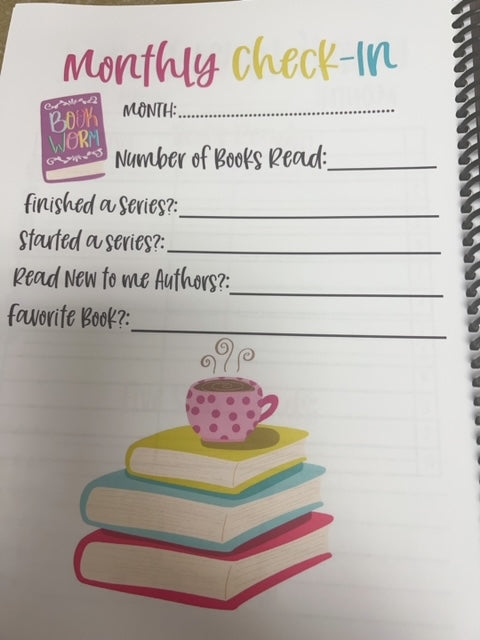 Monthly Check-In
BOOK
WORM
MONTH:
Number of Books Read:
Finished a Series?:
Started a series?:
Read New to me Authors?:
Favorite Book?: